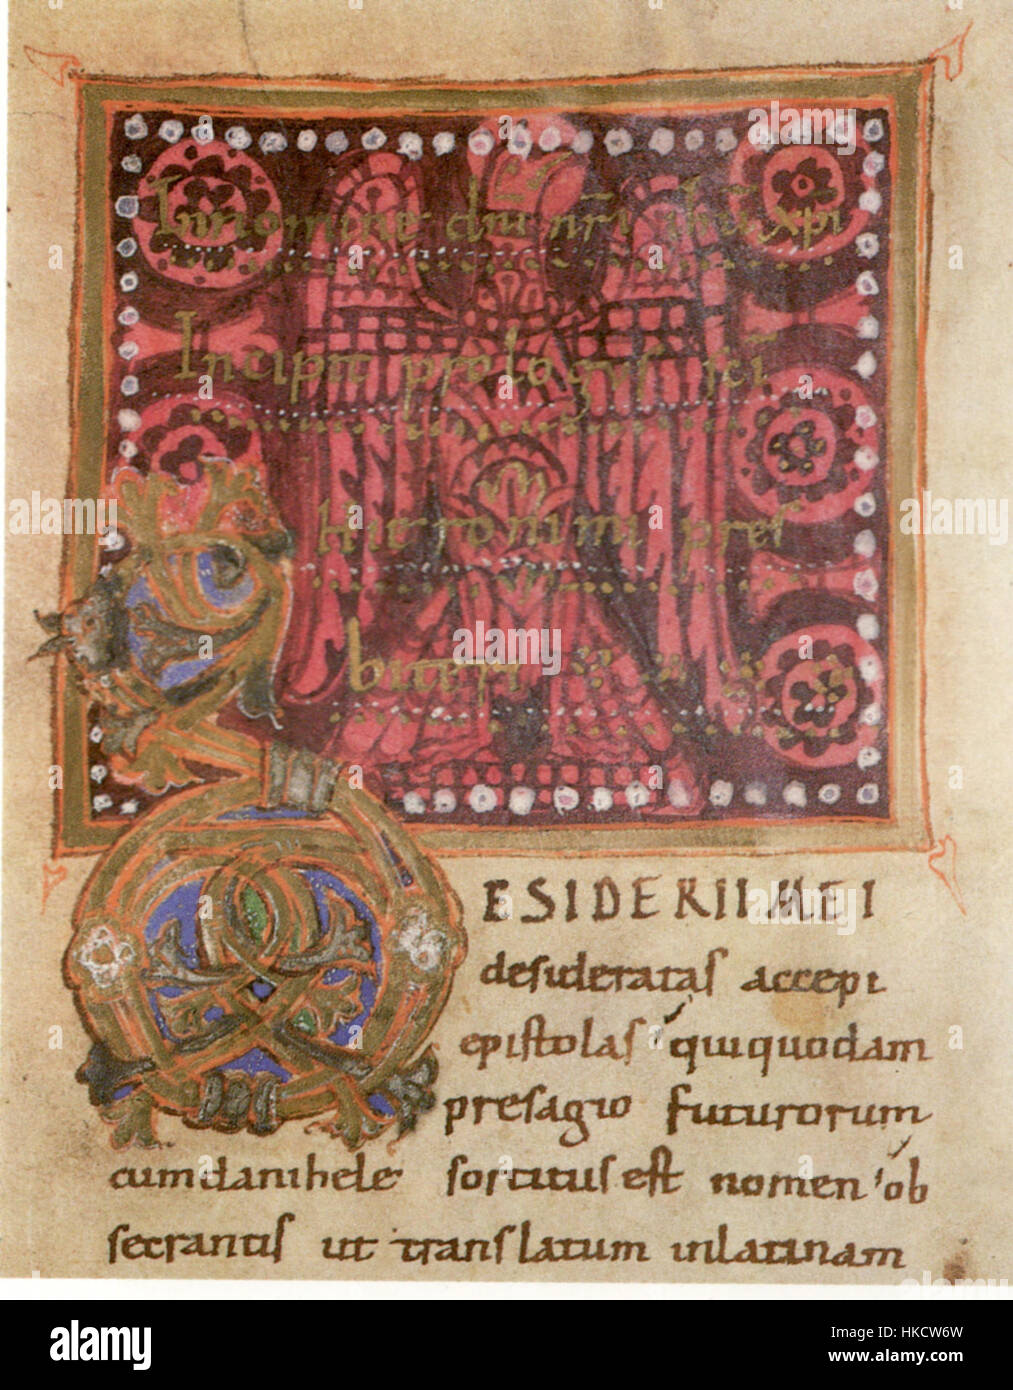 In nomine dñi nr̃i ihũ xpi
Incipit prologus sc̃i
Hieronimi pres
biteri
DESIDERII MEI
desideratas accepi
epistolas qui quodam
presagio futurorum
cum danihele sortitus est nomen ob
secrantis ut translatum in latinam
alamy
Image ID: HKCW6W
www.alamy.com